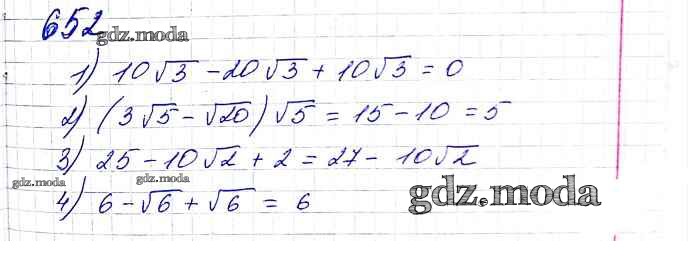 652
gdz.moda
1) 10√3 - 20√3 + 10√3 = 0
2) (3√5 - √20)√5 = 15 - 10 = 5
3) 25 - 10√2 + 2 = 27 - 10√2
gdz.moda gdz.moda
4) 6 - √6 + √6 = 6
gdz.moda